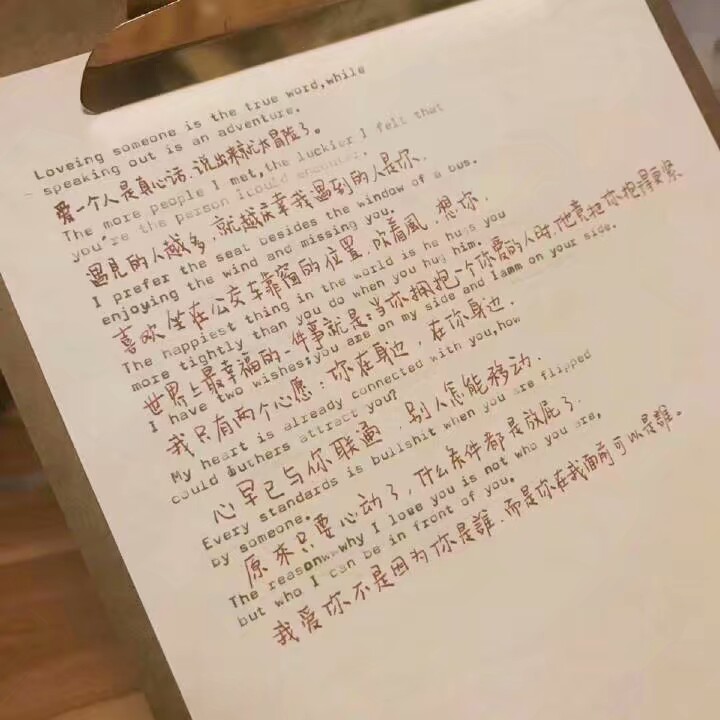 Loveing someone is the true word,while
speaking out is an adventure.
爱一个人是真心话,说出来就大冒险了。
The more people I met,the luckier I felt that
you're the person icould encounter.
遇见的人越多,就越庆幸我遇到的人是你.
I prefer the seat besides the window of a bus.
enjoying the wind and missing you.
喜欢坐在公交车靠窗的位置,吹着風,想你.
The happiest thing in the world is he hugs you
more tightly than you do when you hug him.
世界上最幸福的一件事就是:当你拥抱一个你爱的人时,他竟把你抱得更紧
I have two wishes:you are on my side and Iamm on your side.
我只有两个心愿:你在身边,在你身边.
My heart is already connected with you,how
could outhers attract you?
心早已与你联通,别人怎能移动.
Every standards is bullshit when you are flipped
by someone.
原来只要心动了,什么条件都是放屁了.
The reason why I love you is not who you are,
but who I can be in front of you.
我爱你不是因为你是誰,而是你在我面前可以是誰。